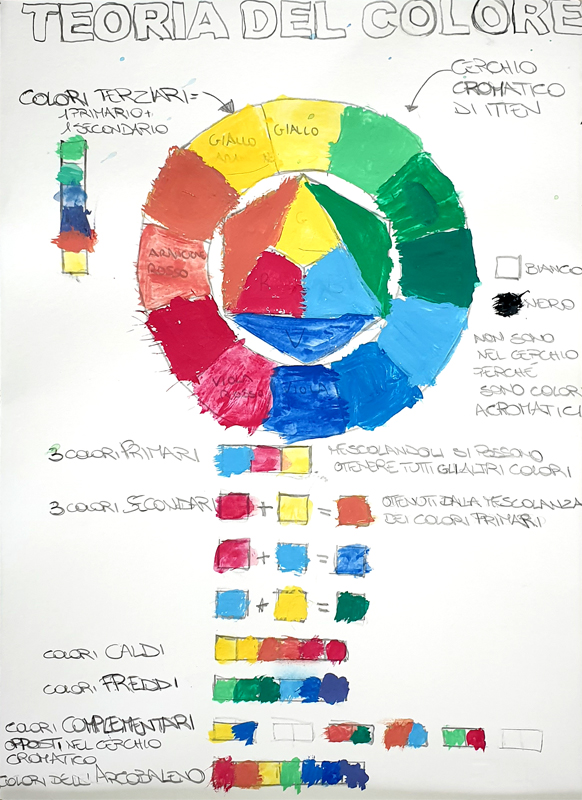 TEORIA DEL COLORE
COLORI TERZIARI =
1 PRIMARIO +
1 SECONDARIO
CERCHIO
CROMATICO
DI ITTEN
GIALLO
GIALLO
ARANCIONE
ROSSO
VIOLA
ROSSO
VIOLA
G
V
BIANCO
NERO
NON SONO
NEL CERCHIO
PERCHÉ
SONO COLORI
ACROMATICI
3 COLORI PRIMARI
MESCOLANDOLI SI POSSONO
OTENERE TUTTI GLI ALTRI COLORI
3 COLORI SECONDARI
+ =
OTENUTI DALLA MESCOLANZA
DEI COLORI PRIMARI
+ =
+ =
COLORI CALDI
COLORI FREDDI
COLORI COMPLEMENTARI
OPPOSTI NEL CERCHIO
CROMATICO
COLORI DELL'ARCOBALENO